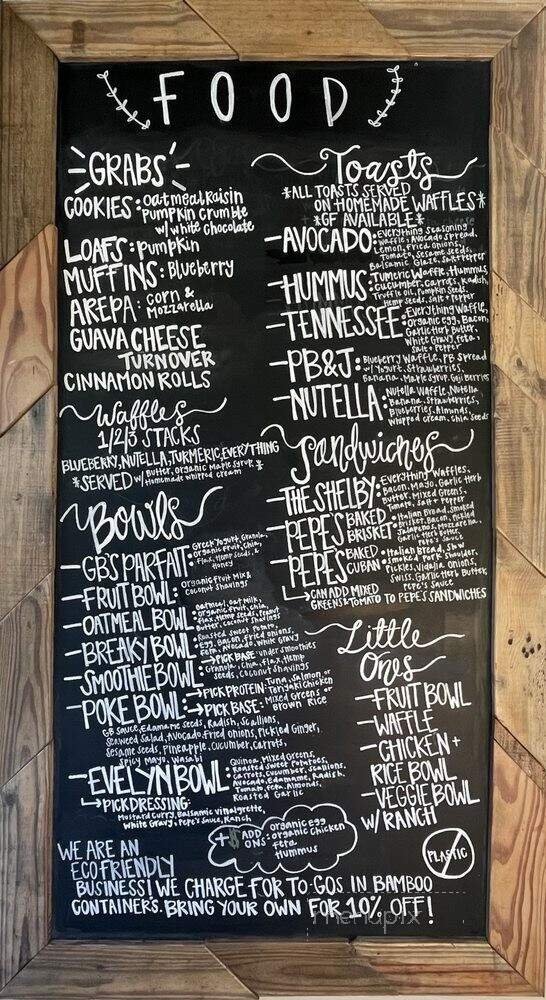 FOOD
GRABS
COOKIES: oatmeal Raisin
Pumpkin Crumble
w/ white chocolate
LOAFS: pumpkin
MUFFINS: Blueberry
AREPA: corn &
Mozzarella
GUAVA CHEESE
TURNOVER
CINNAMON ROLLS
Waffles
1/2/3 STACKS
BLUEBERRY, NUTELLA, TURMERIC, EVERYTHING
*SERVED w/ Butter, organic maple syrup &
Homemade whipped cream*
Bowls
-GB'S PARFAIT: Greek Yogurt, Granola,
organic fruit, chia,
flax, Hemp seeds, &
Honey
-FRUIT BOWL: organic fruit mix &
coconut shavings
-OATMEAL BOWL: oatmeal, oat milk,
organic fruit, chia,
flax, hemp seeds, Peanut
Butter, coconut shavings
-BREAKY BOWL: Roasted sweet potato,
egg, Bacon, fried onions,
feta, Avocado, white gravy
-SMOOTHIE BOWL: → PICK BASE: under smoothies
Granola, chia, flax, Hemp
seeds, coconut shavings
-POKE BOWL: → PICK PROTEIN: Tuna, Salmon, or
Teriyaki chicken
→ PICK BASE: Mixed Greens or
Brown Rice
GB sauce, Edamame seeds, Radish, Scallions,
Seaweed Salad, Avocado, fried onions, Pickled Ginger,
Sesame seeds, Pineapple, cucumber, carrots,
spicy mayo, wasabi
-EVELYN BOWL: Quinoa, Mixed Greens,
Roasted sweet Potatoes,
carrots, cucumber, scallions,
Avocado, Edamame, Radish,
Tomato, feta, Almonds,
Roasted Garlic
→ PICK DRESSING:
Mustard Curry, Balsamic vinaigrette,
white Gravy, Pepe's sauce, Ranch
+$ ADD ONS: organic egg
organic chicken
feta
Hummus
Toasts
*ALL TOASTS SERVED
ON HOMEMADE WAFFLES*
*GF AVAILABLE*
-AVOCADO: everything seasoning
waffle, Avocado spread,
Lemon, fried onions,
Tomato, sesame seeds,
Balsamic Glaze, salt + Pepper
-HUMMUS: Tumeric Waffle, Hummus,
cucumber, carrots, Radish,
Truffle oil, Pumpkin Seeds,
Hemp seeds, salt + Pepper
-TENNESSEE: Everything Waffle,
organic egg, Bacon,
Garlic Herb Butter,
White Gravy, Feta,
salt + Pepper
-PB&J: Blueberry Waffle, PB Spread
w/ Yogurt, Strawberries,
Banana, Maple syrup, Goji Berries
-NUTELLA: Nutella Waffle, Nutella
Banana, Strawberries,
Blueberries, Almonds,
whipped cream, chia seeds
Sandwiches
-THE SHELBY: Everything Waffles,
Bacon, Mayo, Garlic Herb
Butter, Mixed Greens,
Tomato, Salt + Pepper
-PEPE'S BAKED BRISKET: Italian Bread, Smoked
Brisket, Bacon, Pickled
Jalapenos, Mozzarella,
Garlic Herb Butter,
Pepe's Sauce
-PEPE'S BAKED CUBAN: Italian Bread, Slow
smoked Pork shoulder,
Pickles, Vidalia onions,
Swiss, Garlic Herb Butter,
Pepe's Sauce
→ CAN ADD MIXED
GREENS & TOMATO TO PEPE'S SANDWICHES
Little
Ones
-FRUIT BOWL
-WAFFLE
-CHICKEN +
RICE BOWL
-VEGGIE BOWL
w/ RANCH
PLASTIC
WE ARE AN
ECO FRIENDLY
BUSINESS! WE CHARGE FOR TO-GOS IN BAMBOO
CONTAINERS. BRING YOUR OWN FOR 10% OFF!
menupix